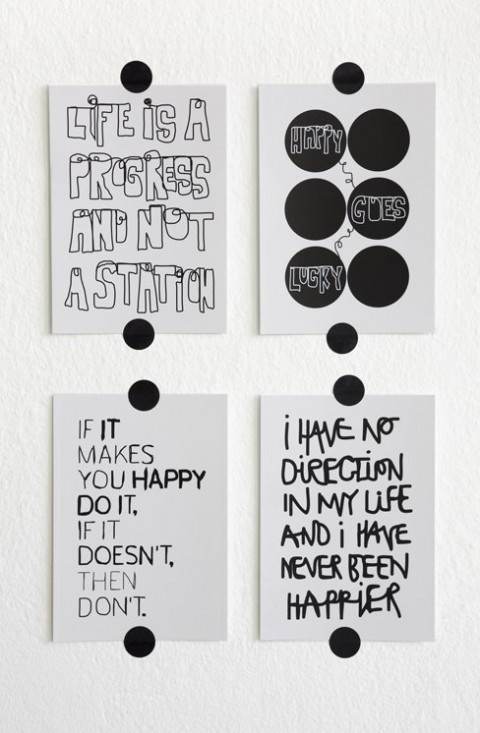 LIFE iS A
PROGRESS
AND NOT
A STATION
HAPPY
GOES
LUCKY
IF IT
MAKES
YOU HAPPY
DO IT,
IF IT
DOESN'T,
THEN
DON'T.
i HAVE NO
DiRECTiON
IN MY LiFE
AND i HAVE
NEVER BEEN
HAPPiER